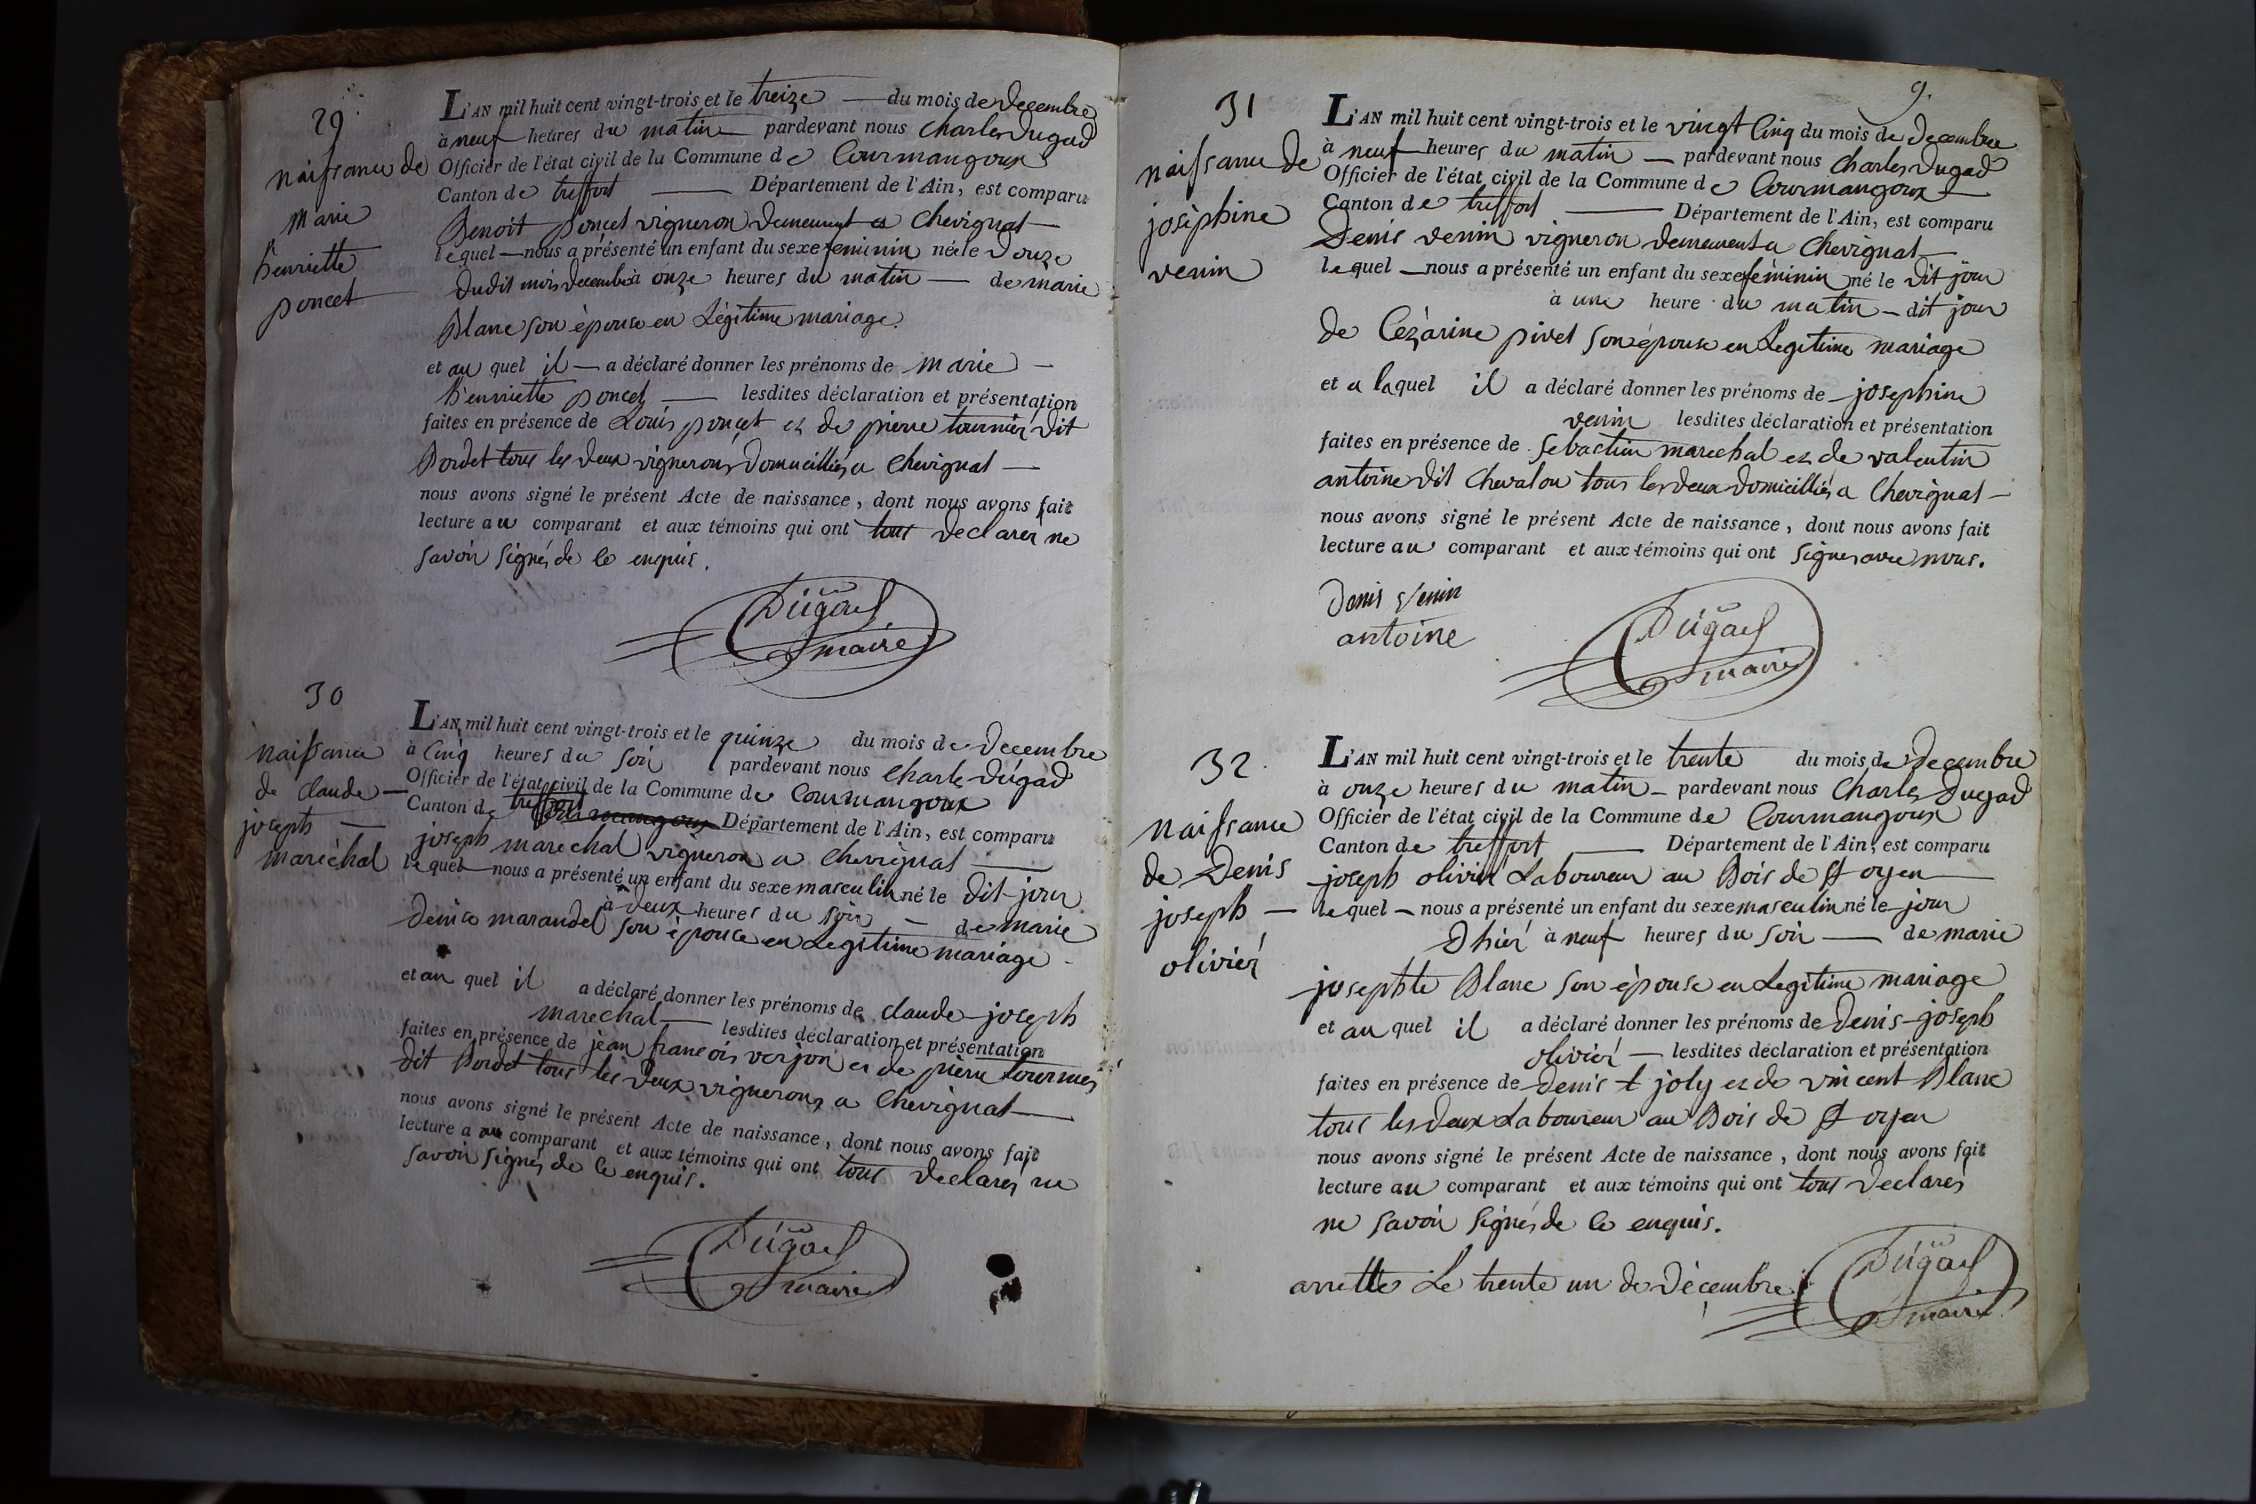 29
naissance de
marie
henriette
poncet
L'AN mil huit cent vingt-trois et le treize — du mois de decembre
à neuf heures du matin — pardevant nous charles Dugad
Officier de l'état civil de la Commune de Courmangoux
Canton de treffort — Département de l'Ain, est comparu
Benoit poncet vigneron demeurent a Chevignat —
lequel — nous a présenté un enfant du sexe feminin née le Douze
dudit mois decembre à onze heures du matin — de marie
Blanc son épouse en Légitime mariage.
et au quel il — a déclaré donner les prénoms de marie —
henriette poncet — lesdites déclaration et présentation
faites en présence de Louis ponçet et de pierre tournier dit
Bordet tous les deux vignerons domicilliés a Chevignat —
nous avons signé le présent Acte de naissance, dont nous avons fait
lecture au comparant et aux témoins qui ont tous declarer ne
savoir signés de ce enquis.
Dugad
maire
30
naissance
de claude —
joseph —
maréchal
L'AN mil huit cent vingt-trois et le quinze du mois de decembre
à Cinq heures du soir pardevant nous Charle Dugad
Officier de l'état civil de la Commune de Courmangoux
Canton de treffort Courmangoux Département de l'Ain, est comparu
joseph marechal vigneron a Chevignat —
lequel nous a présenté un enfant du sexe masculin né le dit jour
à deux heures du soir — de marie
denise marandel son épouce en Legitime mariage
et au quel il a déclaré donner les prénoms de claude joseph
marechal — lesdites déclaration et présentation
faites en présence de jean francois verjon et de pierre tournier
dit Bordet tous les deux vignerons a Chevignat —
nous avons signé le présent Acte de naissance, dont nous avons fait
lecture a au comparant et aux témoins qui ont tous declares ne
savoir signés de ce enquis.
Dugad
maire
9.
31
naissance de
josèphine
venin
L'AN mil huit cent vingt-trois et le vingt Cinq du mois de decembre
à neuf heures du matin — pardevant nous Charles Dugad
Officier de l'état civil de la Commune de Courmangoux —
Canton de treffort — Département de l'Ain, est comparu
Denis venin vigneron demeurent a Chevignat —
lequel — nous a présenté un enfant du sexe féminin né le dit jour
à une heure du matin — dit jour
de Cezarine pivet son épouse en Legitime mariage
et a laquel il a déclaré donner les prénoms de josephine
venin lesdites déclaration et présentation
faites en présence de Sebastien marechal et de valentin
antoine dit Chevalon tous les deux domicilliés a Chevignat —
nous avons signé le présent Acte de naissance, dont nous avons fait
lecture au comparant et aux témoins qui ont signes avec nous.
Denis Venin
antoine
Dugad
maire
32.
naissance
de Denis
joseph —
olivier
L'AN mil huit cent vingt-trois et le trente du mois de decembre
à onze heures du matin — pardevant nous Charles Dugad
Officier de l'état civil de la Commune de Courmangoux
Canton de treffort — Département de l'Ain, est comparu
joseph olivier Laboureur au Bois de St oyen —
lequel — nous a présenté un enfant du sexe masculin né le jour
Dhier à neuf heures du soir — de marie
josephte Blanc son épouse en Legitime mariage
et au quel il a déclaré donner les prénoms de denis joseph
olivier — lesdites déclaration et présentation
faites en présence de denis t joly et de vincent Blanc
tous les deux Laboureur au Bois de St oyen
nous avons signé le présent Acte de naissance, dont nous avons fait
lecture au comparant et aux témoins qui ont tous declares
ne savoir signés de ce enquis.
arretté Le trente un de Décembre
Dugad
maire